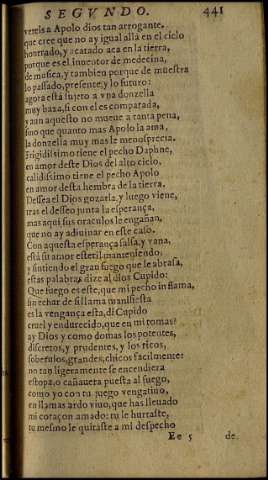 SEGVNDO. 441
vereis a Apolo dios tan arrogante.
que cree que no ay igual allà en el cielo
honrrado, y acatado aca en la tierra,
porque es el inuentor de medecina,
de musica, y tambien porque de muestra
lo passado, presente, y lo futuro:
agora està sujeto a vna donzella
muy baxa, si con el es comparada,
y aun aquesto no mueue a tanta pena,
sino que quanto mas Apolo la ama,
la donzella muy mas le menosprecia.
Frigidissimo tiene el pecho Daphne,
en amor deste Dios del alto cielo,
calidissimo tiene el pecho Apolo
en amor desta hembra de la tierra.
Dessea el Dios gozarla, y luego viene,
tras el desseo junta la esperança,
mas aqui sus oraculos le engañan,
que no ay adiuinar en este caso.
Con aquesta esperança falsa, y vana,
està su amor esteril manteniendo:
y sintiendo el gran fuego que le abrasa,
estas palabras dize al dios Cupido:
Que fuego es este, que mi pecho inflama,
sin echar de si llama manifiesta
es la vengança esta, di Cupido
cruel y endurecido, que en mi tomas?
ay Dios y como domas los potentes,
discretos, y prudentes, y los ricos,
soberuios, grandes, chicos facilmente:
no tan ligeramente se encendiera
estopa, o cañauera puesta al fuego,
como yo con tu fuego vengatiuo,
en llamas ardo viuo, que has lleuado
mi coraçon amado: tu le hurtaste,
tu mesmo le quitaste a mi despecho
Ee 5 de